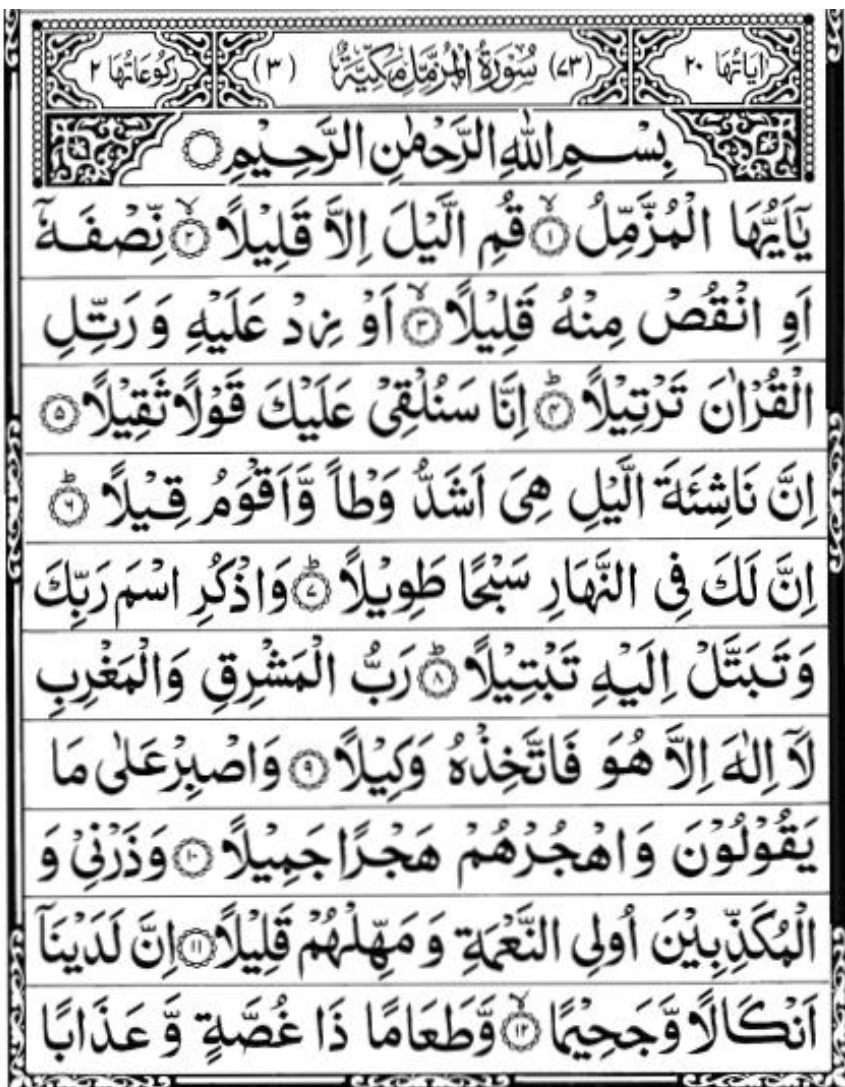 اٰیَاتُهَا ۲۰ (۷۳) سُوْرَةُ الْمُزَّمِّلِ مَكِّیَّةٌ (۳) رُكُوْعَاتُهَا ۲
بِسْمِ اللّٰهِ الرَّحْمٰنِ الرَّحِیْمِ
یٰۤاَیُّهَا الْمُزَّمِّلُ ۙ‏﴿۱﴾ قُمِ الَّیْلَ اِلَّا قَلِیْلًا ۙ‏﴿۲﴾ نِّصْفَهٗۤ
اَوِ انْقُصْ مِنْهُ قَلِیْلًا ۙ‏﴿۳﴾ اَوْ زِدْ عَلَیْهِ وَ رَتِّلِ
الْقُرْاٰنَ تَرْتِیْلًا ؕ‏﴿۴﴾ اِنَّا سَنُلْقِیْ عَلَیْكَ قَوْلًا ثَقِیْلًا ﴿۵﴾
اِنَّ نَاشِئَةَ الَّیْلِ هِیَ اَشَدُّ وَطْاً وَّاَقْوَمُ قِیْلًا ؕ‏﴿۶﴾
اِنَّ لَكَ فِی النَّهَارِ سَبْحًا طَوِیْلًا ؕ‏﴿۷﴾ وَاذْكُرِ اسْمَ رَبِّكَ
وَتَبَتَّلْ اِلَیْهِ تَبْتِیْلًا ؕ‏﴿۸﴾ رَبُّ الْمَشْرِقِ وَالْمَغْرِبِ
لَاۤ اِلٰهَ اِلَّا هُوَ فَاتَّخِذْهُ وَكِیْلًا ﴿۹﴾ وَاصْبِرْ عَلٰی مَا
یَقُوْلُوْنَ وَاهْجُرْهُمْ هَجْرًا جَمِیْلًا ﴿۱۰﴾ وَذَرْنِیْ وَ
الْمُكَذِّبِیْنَ اُولِی النَّعْمَةِ وَ مَهِّلْهُمْ قَلِیْلًا ﴿۱۱﴾ اِنَّ لَدَیْنَاۤ
اَنْكَالًا وَّجَحِیْمًا ۙ‏﴿۱۲﴾ وَّطَعَامًا ذَا غُصَّةٍ وَّ عَذَابًا